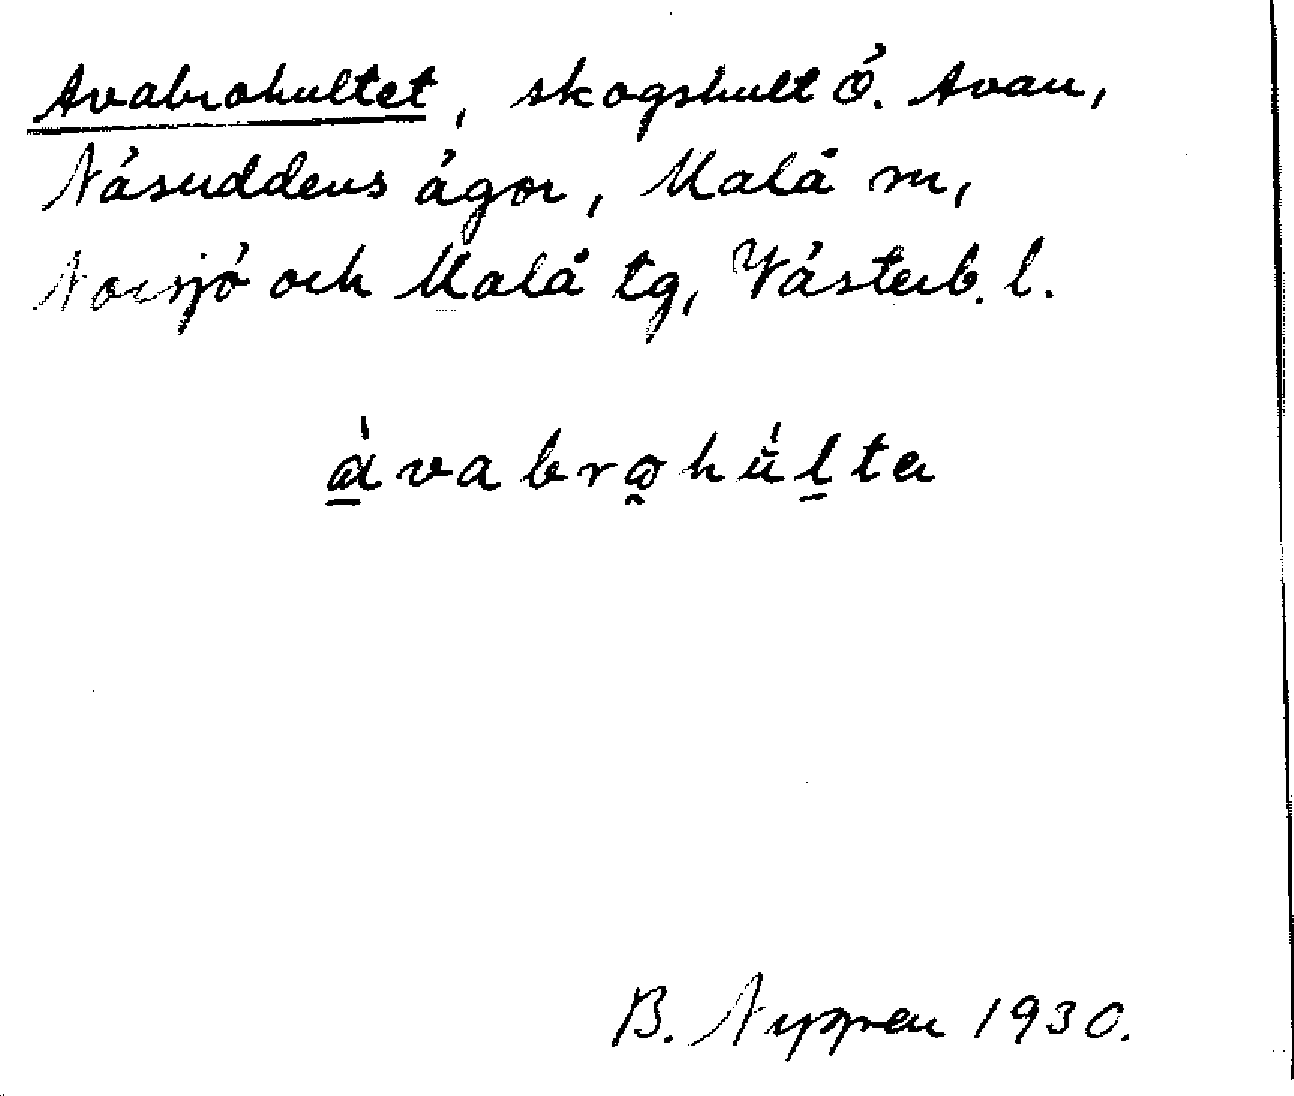 Avabrohultet, skogshult Ö. Avan,
Näsuddens ägor, Malå sn,
Norsjö och Malå tg, Västerb. l.
àvabrohúlta
B. 1930.